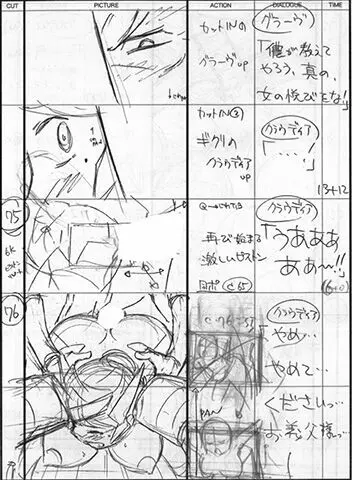 CUT PICTURE ACTION DIALOGUE TIME
カットINの
グラーヴUP
グラーヴ
「僕が教えて
やろう、真の、
女の悦びをな!」
カットIN③
ギクリの
クラウディア
UP
クラウディア
「……!」
13+12
75
再び始まる
激しいピストン
クラウディア
「うあああ
ああ〜!!」
(6+0)
76
クラウディア
「やめ…
やめて…
くださいっ…
お義父様っ…
PAN